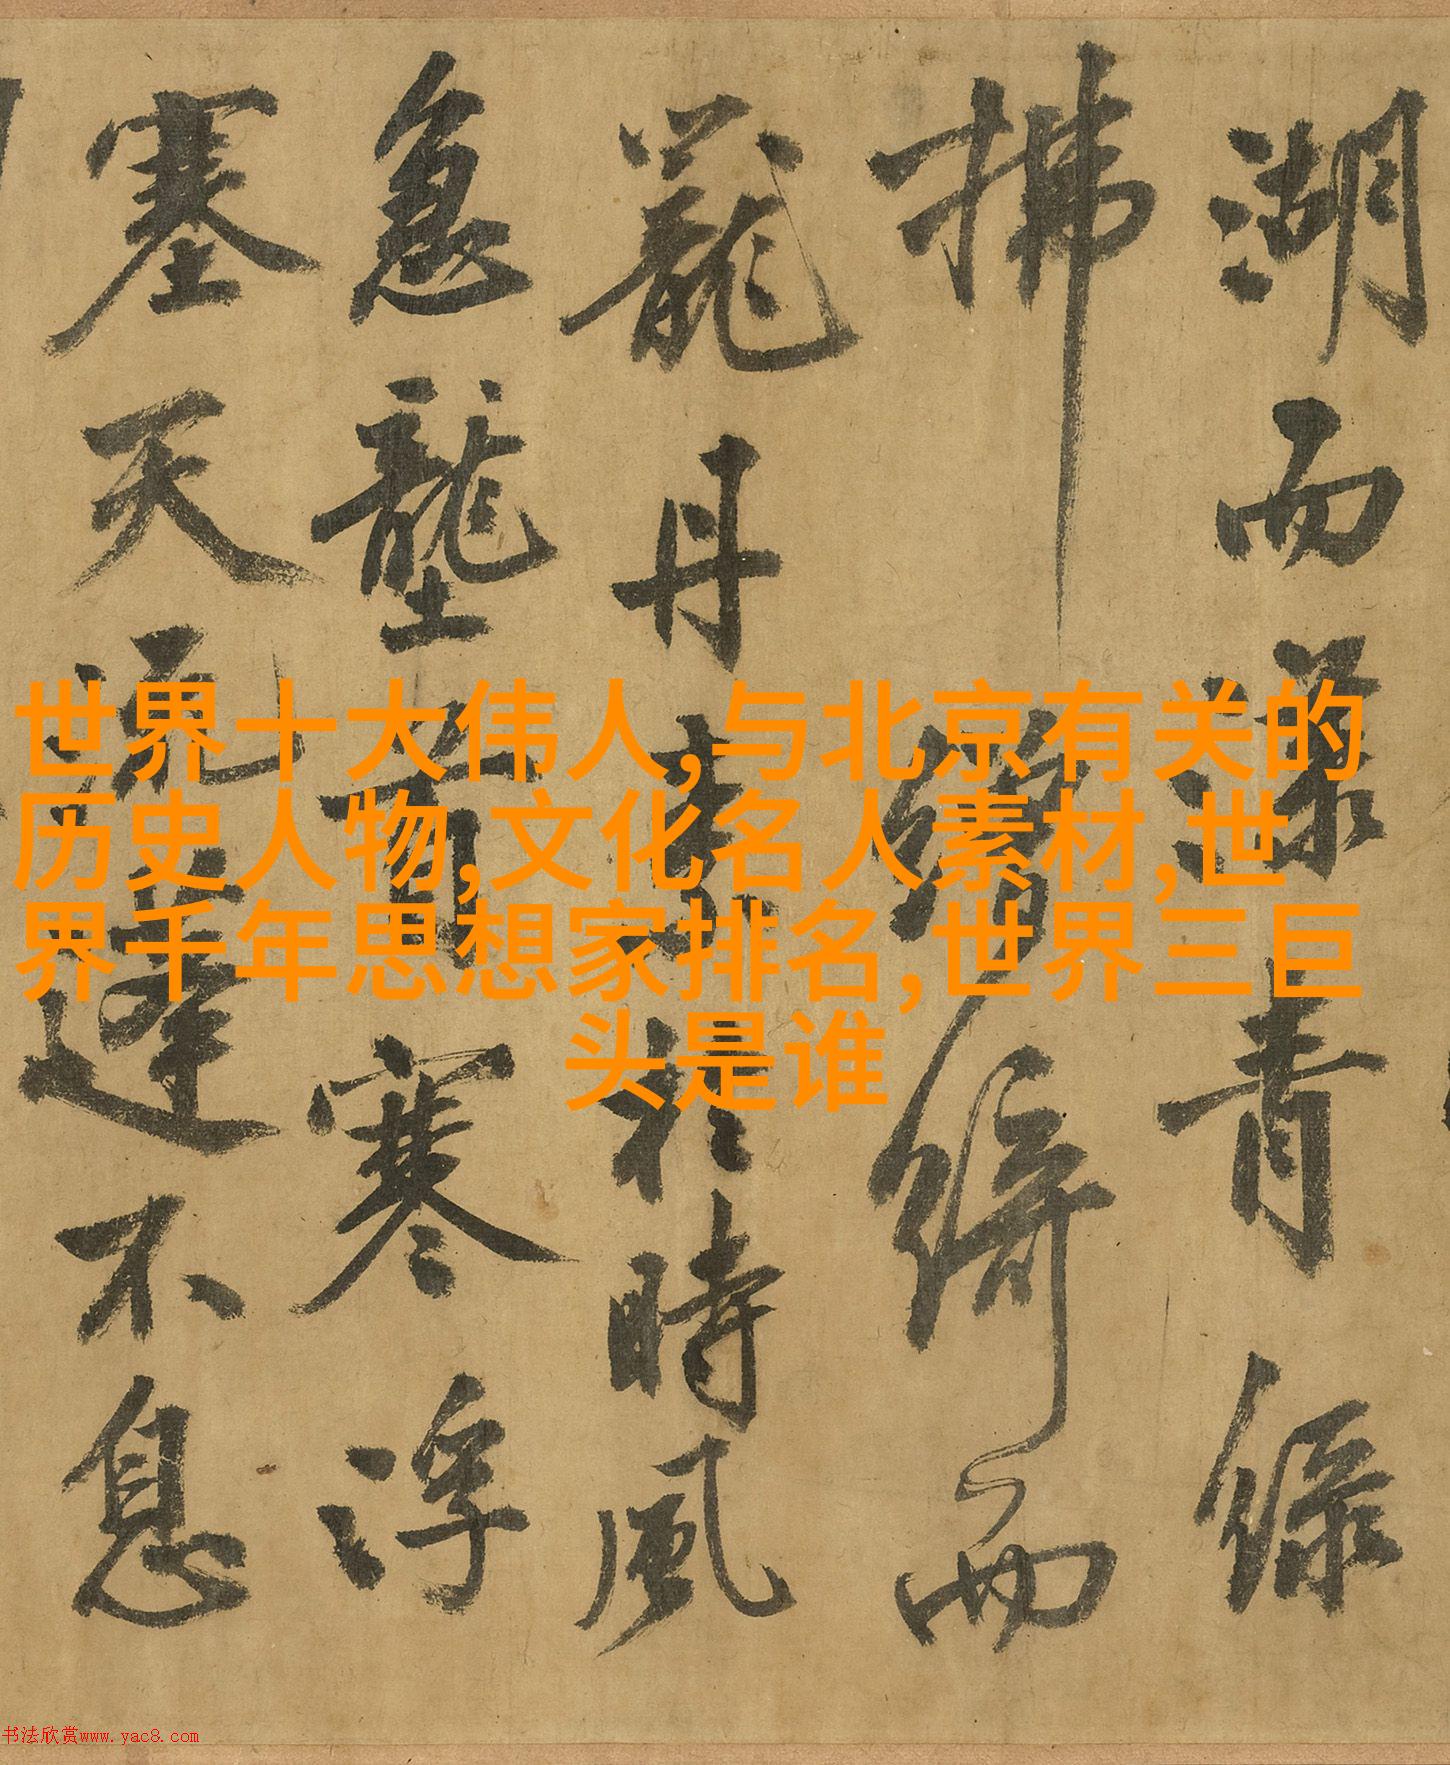 湖而漾青緑
拂綺而
籠丹於時風
急壟首寒浮
塞天流蓬不息
世界十大伟人,与北京有关的
历史人物,文化名人素材,世
界千年思想家排名,世界三巨
头是谁
书法欣赏www.yac8.com